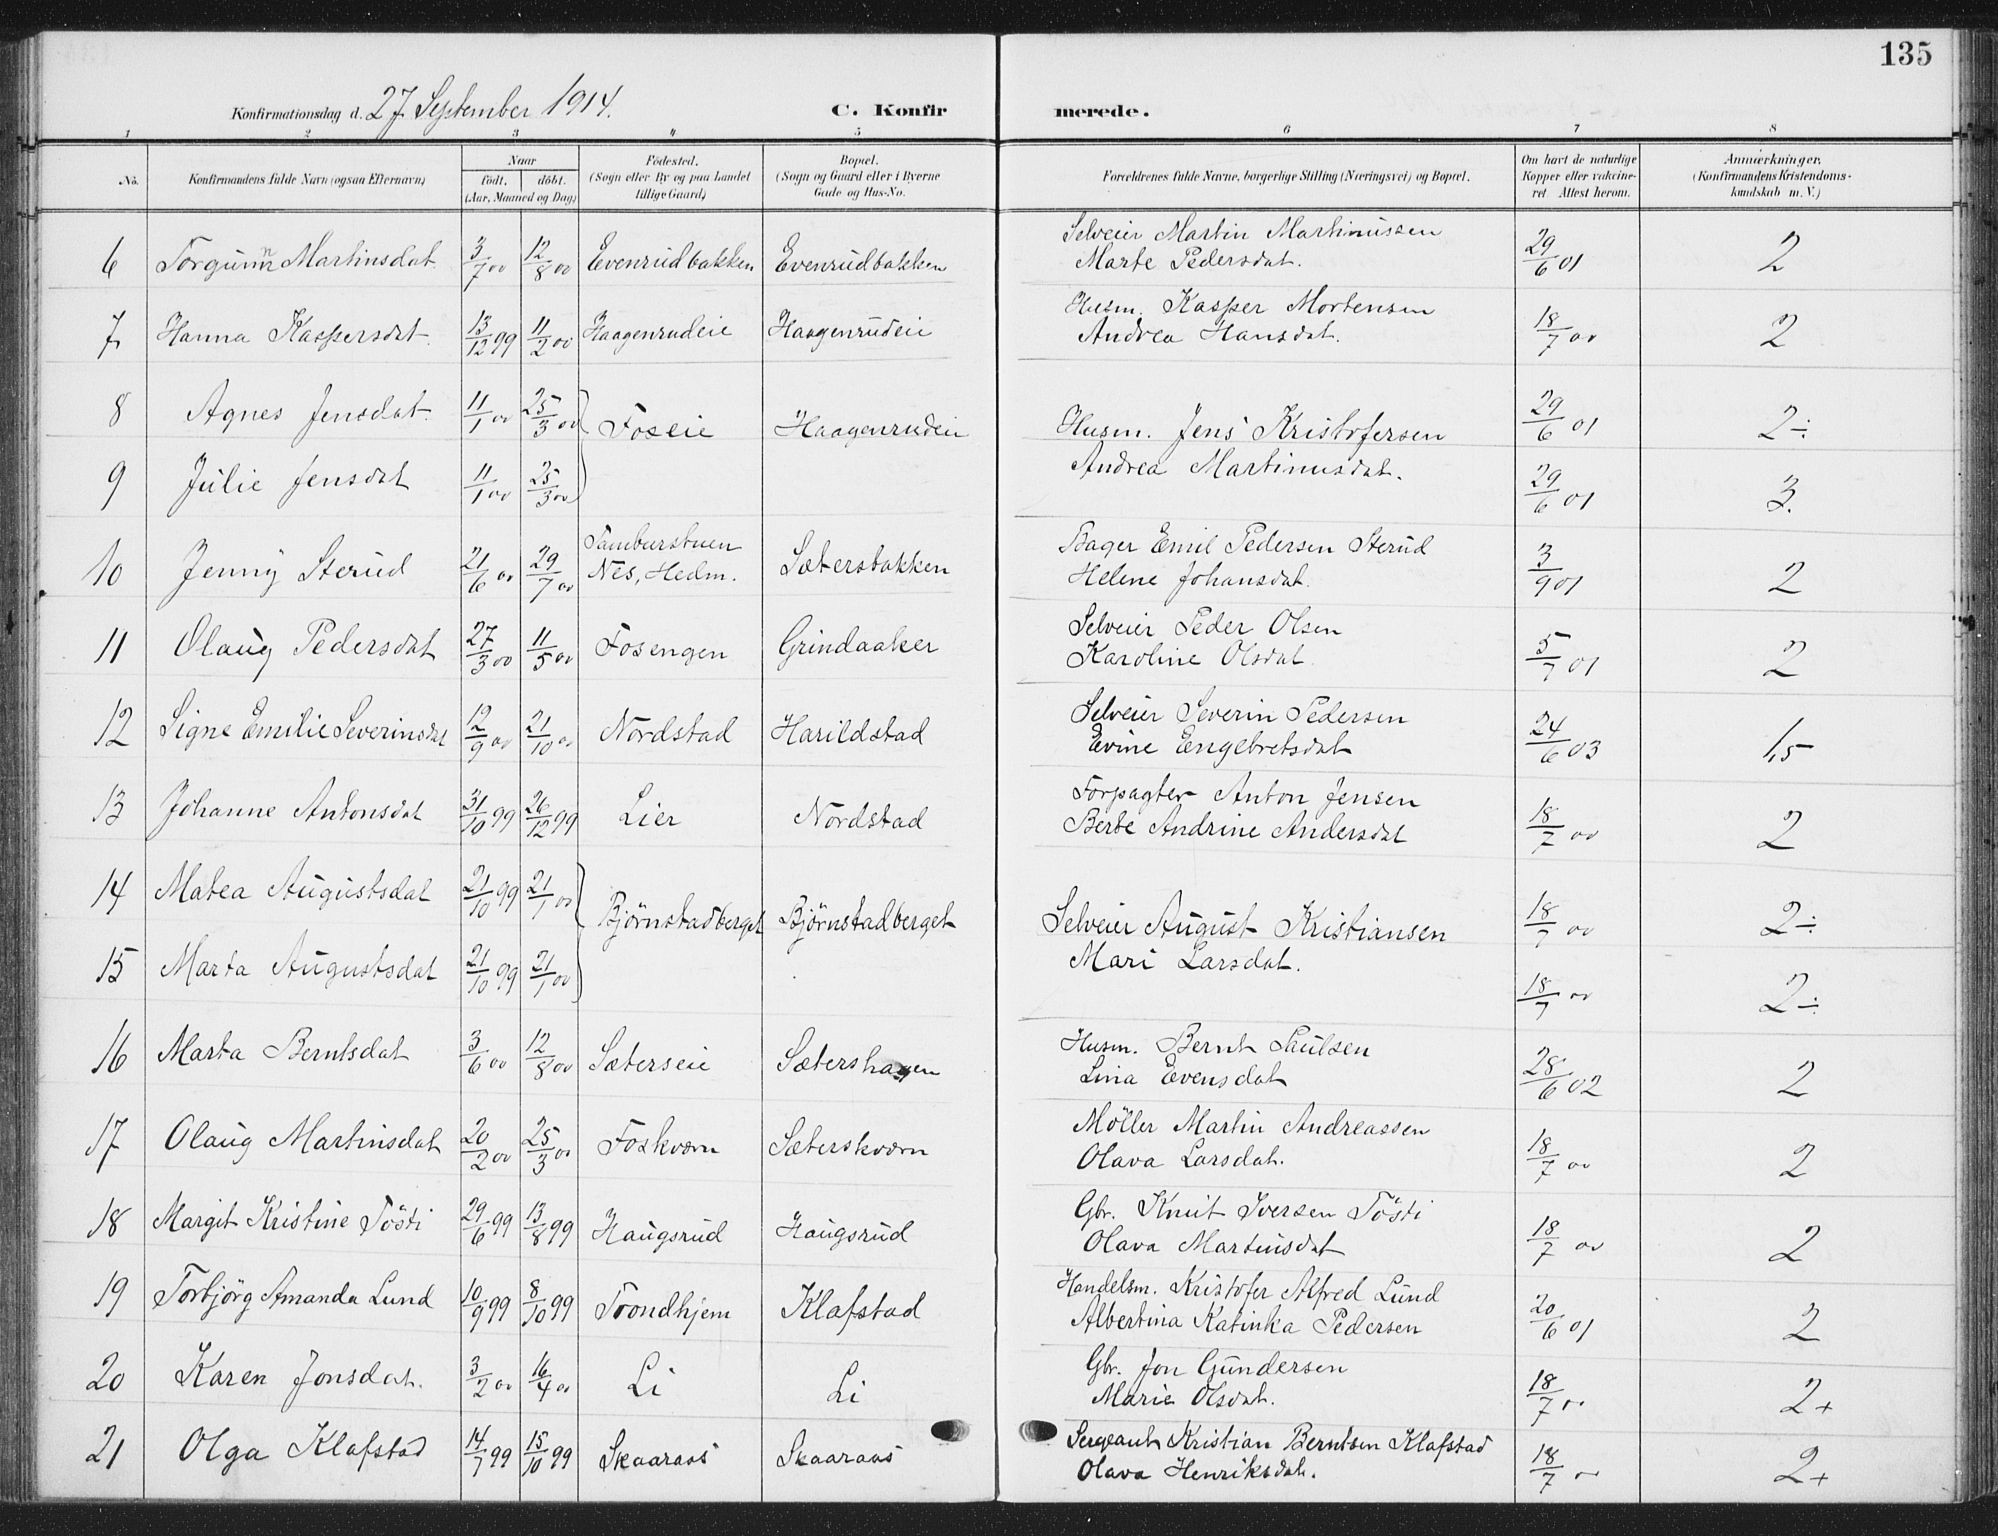 135
Konfirmationsdag d. 27 September 1914. C. Konfirmerede.
1 2 3 4 5 6 7 8
No. Konfirmandens fulde Navn (ogsaa Efternavn) Naar født. døbt. (Aar, Maaned og Dag) Fødested. (Sogn eller By og paa Landet tillige Gaard) Bopæl. (Sogn og Gaard eller i Byerne Gade og Hus-No. Forældrenes fulde Navne, borgerlige Stilling (Næringsvei) og Bopæl. Om havt de naturlige Kopper eller vakcineret. Attest herom. Anmærkninger. (Konfirmandens Kristendomskundskab m. V.)
6 Torgunn Martinsdat. 3/7 00 12/8 00 Evenrudbakken Evenrudbakken Selveier Martin Martinussen 29/6 01 2
Marte Pedersdat.
7 Hanna Kaspersdat. 13/12 99 11/2 00 Haagenrudeie Haagenrudeie Husm. Kasper Mortensen 18/7 00 2
Andrea Hansdat.
8 Agnes Jensdat. 11/1 00 25/3 00 Foseie Haagenrudeie Husm. Jens Kristofersen 29/6 01 2÷
9 Julie Jensdat 11/1 00 25/3 00 Andrea Martinusdat. 29/6 01 3.
10 Jenny Sterud 21/6 00 29/7 00 Tamburstuen Nes, Hedm. Sætersbakken Bager Emil Pedersen Sterud 3/9 01 2
Helene Johansdat.
11 Olaug Pedersdat 27/3 00 11/5 00 Fosengen Grindaaker Selveier Peder Olsen 5/7 01 2
Karoline Olsdat.
12 Signe Emilie Severinsdat 12/9 00 21/10 00 Nordstad Harildstad Selveier Severin Pedersen 24/6 03 1,5
Evine Engebretsdat
13 Johanne Antonsdat 31/10 99 26/12 99 Lier Nordstad Forpagter Anton Jensen 18/7 00 2
Berte Andrine Andersdat
14 Matea Augustsdat 21/10 99 21/1 00 Bjørnstadberget Bjørnstadberget Selveier August Kristiansen 18/7 00 2÷
15 Marta Augustsdat 21/10 99 21/1 00 Mari Larsdat. 18/7 00 2÷
16 Marta Berntsdat 3/6 00 12/8 00 Sæterseie Sætershagen Husm. Bernt Paulsen 28/6 02 2
Lina Evensdat
17 Olaug Martinsdat 20/2 00 25/3 00 Foskværn Sæterskværn Möller Martin Andreassen 18/7 00 2
Olava Larsdat.
18 Margit Kristine Tösti 29/6 99 13/8 99 Haugsrud Haugsrud Gbr. Knut Iversen Tösti 18/7 00 2
Olava Martinsdat
19 Torbjörg Amanda Lund 10/9 99 8/10 99 Trondhjem Klafstad Handelsm. Kristofer Alfred Lund 20/6 01 2
Albertina Katinka Pedersen
20 Karen Jonsdat. 3/2 00 16/4 00 Li Li Gbr. Jon Gundersen 18/7 00 2+
Marie Olsdat.
21 Olga Klafstad 14/7 99 15/10 99 Skaaraas Skaaraas Sergeant Kristian Berntsen Klafstad 18/7 00 2+
Olava Henriksdat.